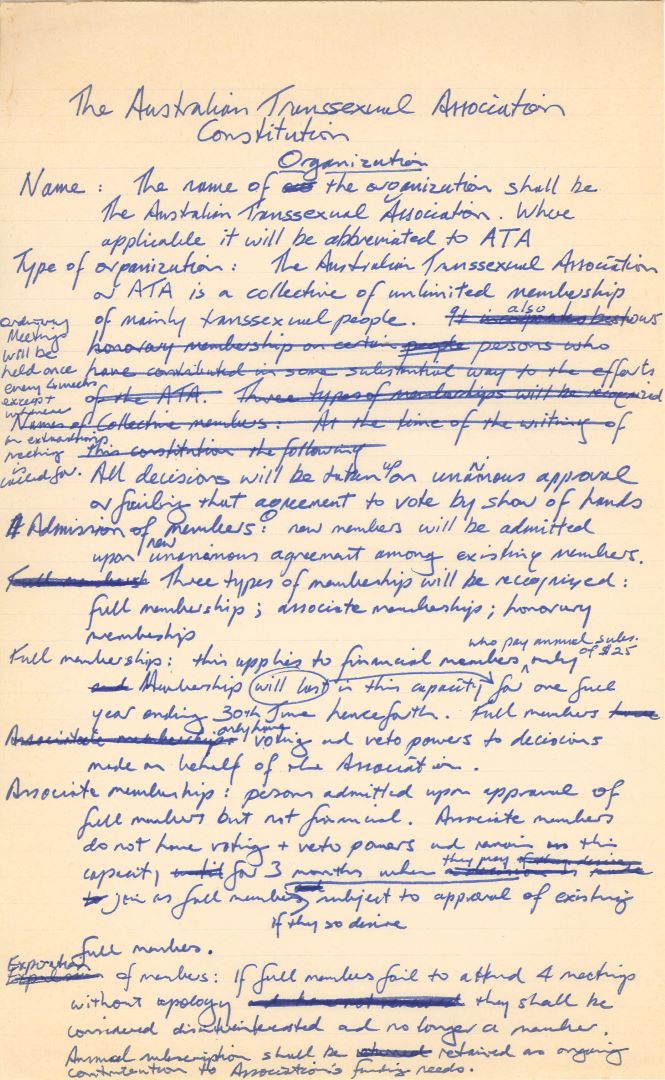 The Australian Transsexual Association
Constitution
Organization
Name : The name of the organization shall be
The Australian Transsexual Association. Where
applicable it will be abbreviated to ATA
Type of organization : The Australian Transsexual Association
or ATA is a collective of unlimited membership
of mainly transsexual people. It also bestows
honorary membership on certain people persons who
have contributed in some substantial way to the efforts
of the ATA. Three types of memberships will be recognized
Names of Collective members : At the time of the writing of
this constitution the following
ordinary
Meetings
will be
held once
every 4 weeks
except
whenever
an extraordinary
meeting
is
called for.
All decisions will be taken up on unanimous approval
or failing that agreement to vote by show of hands
Admission of new members : new members will be admitted
upon unanimous agreement among existing members.
Full members Three types of membership will be recognized :
full membership ; associate membership ; honorary
membership
Full membership : this applies to financial members only who pay annual subs. of $25
and Membership will last in this capacity for one full
year ending 30th June henceforth. Full members have
Associate membership : only have voting and veto powers to decisions
made on behalf of the Association.
Associate membership : persons admitted upon approval of
full members but not financial. Associate members
do not have voting + veto powers and remain in this
capacity until for 3 months when they may if they desire
to join as full members subject to approval of existing
if they so desire
full members.
Expiration of members : If full members fail to attend 4 meetings
without apology they shall be
considered disinterested and no longer a member.
Annual subscription shall be retained as ongoing
contribution to Association's funding needs.